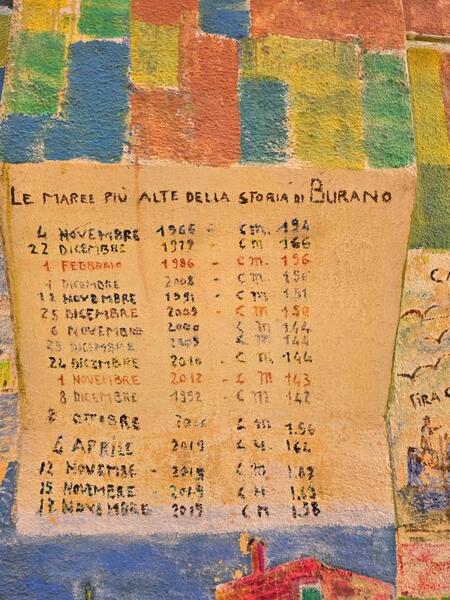 LE MAREE PIÙ ALTE DELLA STORIA DI BURANO
4 NOVEMBRE 1966 - CM. 194
22 DICEMBRE 1979 - CM 166
1 FEBBRAIO 1986 - CM. 156
1 DICEMBRE 2008 - CM. 156
NOVEMBRE 1991 - CM. 151
25 DICEMBRE 2009 - CM. 150
6 NOVEMBRE 2000 CM. 144
23 DICEMBRE 2009 CM 144
24 DICEMBRE 2010 - CM. 144
1 NOVEMBRE 2012 - CM 143
8 DICEMBRE 1992 CM 142
OTTOBRE CM 156
APRILE 2019 CM. 162
12 NOVEMBRE - 2019 CM
15 NOVEMBRE - 2019 CM
17 NOVEMBRE 2019 CM